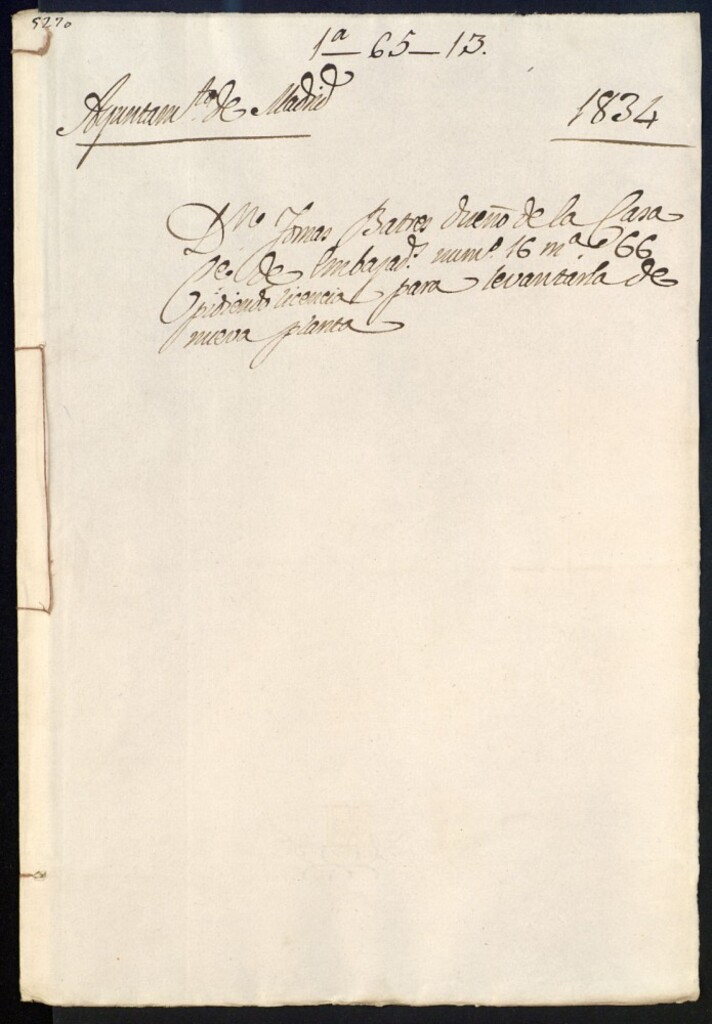 5270
1ª — 65 — 13.
Ayuntam.to de Madrid
1834
Dn. Tomas Batres dueño de la Casa
de Embajad.s num.o 16 m.a 66
pidiendo licencia para levantarla de
nueva planta